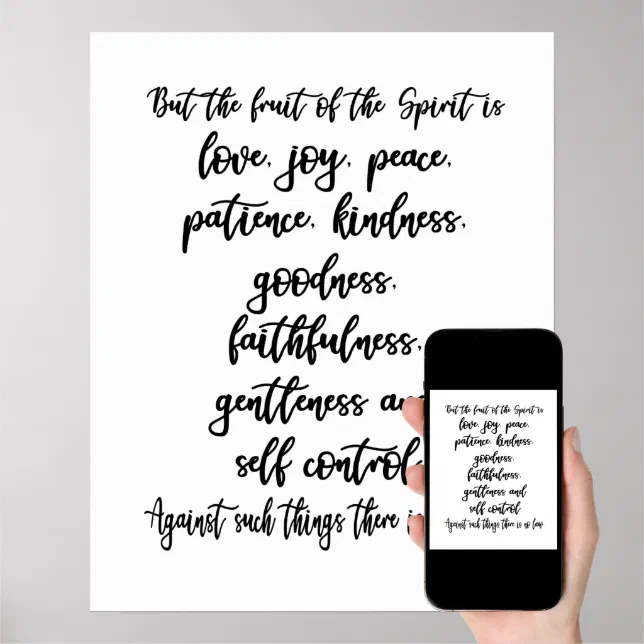 But the fruit of the Spirit is
love, joy, peace,
patience, kindness,
goodness,
faithfulness,
gentleness and
self control
Against such things there is
But the fruit of the Spirit is
love, joy, peace,
patience, kindness,
goodness,
faithfulness,
gentleness and
self control
Against such things there is no law